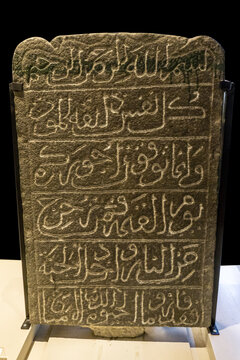 بسم الله الرحمن الرحيم
كل نفس ذائقة الموت
وإنما توفون أجوركم
يوم القيمة فمن زحزح
عن النار وأدخل الجنة
فقد فاز وما الحيوة الدنيا